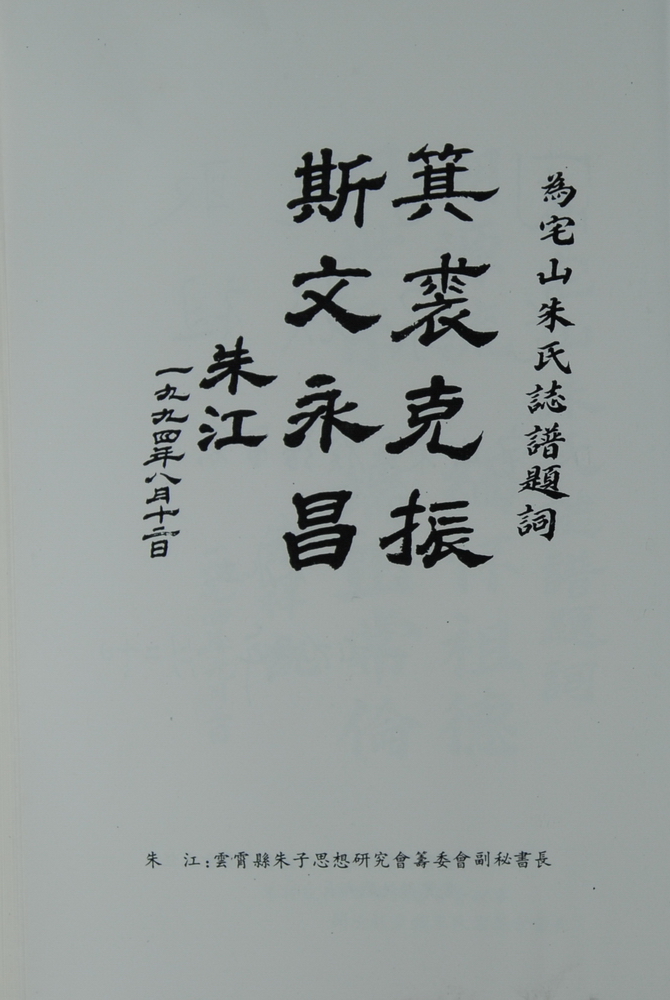 為宅山朱氏誌譜題詞
箕裘克振
斯文永昌
朱江
一九九四年八月十二日
朱　江：雲霄縣朱子思想研究會籌委會副秘書長